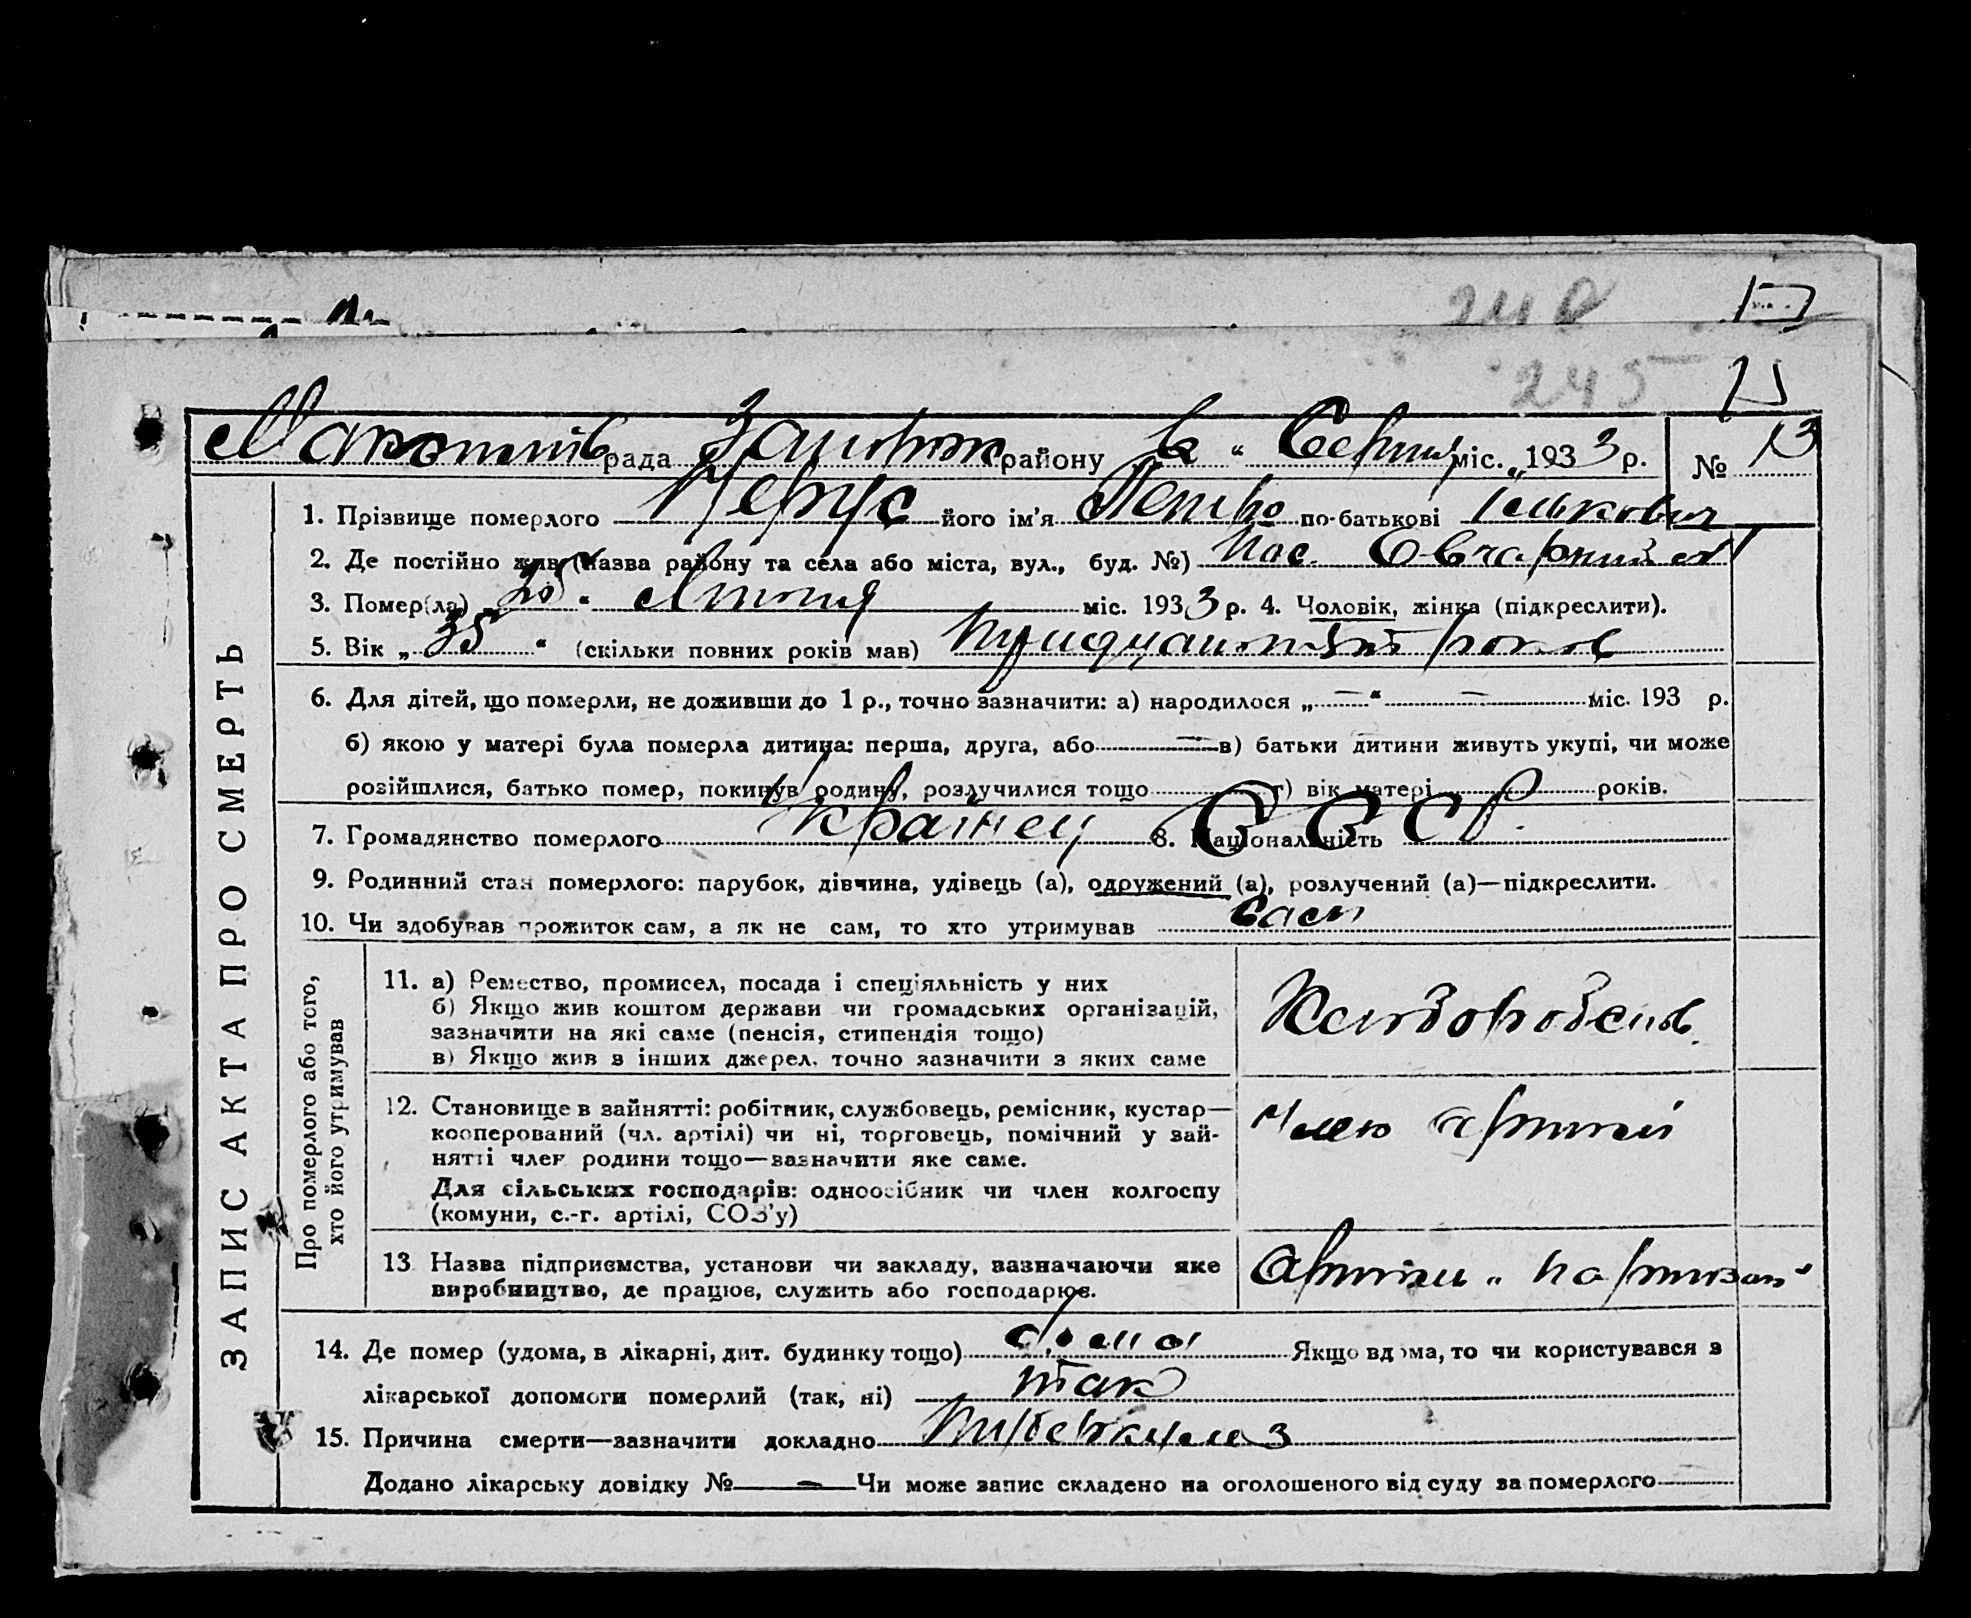 240
245
рада Запоріж району „ “ Серпня міс. 1933 р. № 13
1. Прізвище померлого Церус його ім'я Петро по-батькові Ількович
2. Де постійно жив (назва району та села або міста, вул., буд. №) пос.
3. Помер(ла) „ “ міс. 1933 р. 4. Чоловік, жінка (підкреслити).
5. Вік „ 35 “ (скільки повних років мав) років
6. Для дітей, що померли, не доживши до 1 р., точно зазначити: а) народилося „ — “ — міс. 193 р.
б) якою у матері була померла дитина: перша, друга, або — в) батьки дитини живуть укупі, чи може
розійшлися, батько помер, покинув родину, розлучилися тощо г) вік матері років.
7. Громадянство померлого Українец 8. Національність СССР.
9. Родинний стан померлого: парубок, дівчина, удівець (а), одружений (а), розлучений (а)—підкреслити.
10. Чи здобував прожиток сам, а як не сам, то хто утримував сам
ЗАПИС АКТА ПРО СМЕРТЬ
Про померлого або того,
хто його утримував
11. а) Ремество, промисел, посада і спеціяльність у них
б) Якщо жив коштом держави чи громадських організацій,
зазначити на які саме (пенсія, стипендія тощо)
в) Якщо жив з інших джерел, точно зазначити з яких саме
Хлібороб
12. Становище в зайнятті: робітник, службовець, ремісник, кустар—
кооперований (чл. артілі) чи ні, торговець, помічний у зай-
нятті член родини тощо—зазначити яке саме.
Для сільських господарів: одноосібник чи член колгоспу
(комуни, с.-г. артілі, СОЗ'у)
Член артілі
13 Назва підприємства, установи чи закладу, зазначаючи яке
виробництво, де працює, служить або господарює.
Артіль „Партизан"
14. Де помер (удома, в лікарні, дит. будинку тощо) дома Якщо вдома, то чи користувався з
лікарської допомоги померлий (так, ні) так
15. Причина смерти—зазначити докладно туберкулез
Додано лікарську довідку № — Чи може запис складено на оголошеного від суду за померлого